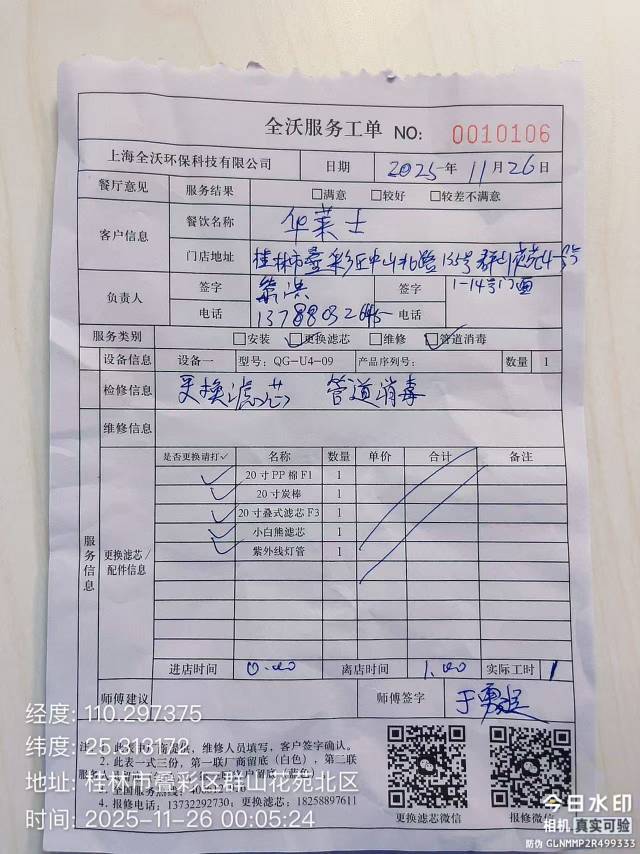 全沃服务工单 NO: 0010106
上海全沃环保科技有限公司 日期 2025年11月26日
餐厅意见 服务结果 □满意 □较好 □较差不满意
客户信息 餐饮名称 华莱士
门店地址 桂林市叠彩区中山北路135号群山花苑4号
1-14号门面
负责人 签字 签字
电话 13788032645 电话
服务类别 □安装 ☑更换滤芯 □维修 ☑管道消毒
设备信息 设备一 型号: QG-U4-09 产品序列号: 数量 1
检修信息 更换滤芯 管道消毒
维修信息
服务信息
更换滤芯/配件信息
是否更换请打✓ 名称 数量 单价 合计 备注
✓ 20寸PP棉F1 1
✓ 20寸炭棒 1
✓ 20寸叠式滤芯F3 1
✓ 小白熊滤芯 1
✓ 紫外线灯管 1
进店时间 0.00 离店时间 1.00 实际工时 1
师傅建议 师傅签字
维修人员填写，客户签字确认。
2. 此表一式三份，第一联厂商留底（白色），第二联
4. 报修电话: 13732292730; 更换滤芯: 18258897611
更换滤芯微信 报修微信
经度: 110.297375
纬度: 25.313172
地址: 桂林市叠彩区群山花苑北区
时间: 2025-11-26 00:05:24
今日水印
相机 真实可验
防伪 GLNMMP2R499333